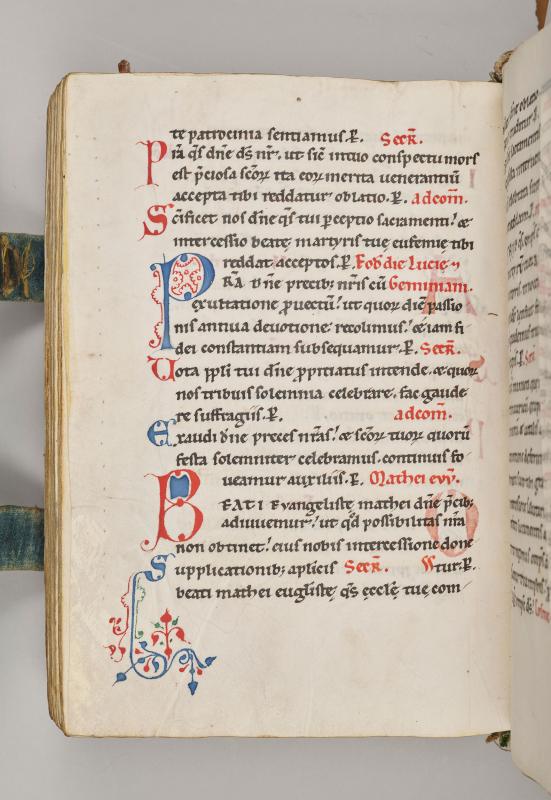 te patrocinia sentiamus. P̄. Secr̄.
Pia q̄s dn̄e ds̄ nr̄. ut sic̄ in tuo conspectu mors
est p̄ciosa sc̄oꝝ ita eoꝝ merita uenerantiū
accepta tibi reddatur oblatio. P̄. ad com̄.
Sc̄ificet nos dn̄e q̄s tui p̄ceptio sacramenti. &
intercessio beatę martyris tuę eufemię tibi
reddat acceptos. P̄. Eod̄ die Lucie ⁊
PRA dn̄e precib; nr̄is cū Geminiani.
exultatione ꝓuectū. ut quoꝝ diē passio
nis annua deuotione recolimus. & iam fi
dei constantiam subsequamur. P̄. Secr̄.
Uota ppl̄i tui dn̄e ꝓpitiatus intende. & quoꝝ
nos tribuis solemnia celebrare. fac gaude
re suffragiis. P̄. ad com̄.
Exaudi dn̄e preces nr̄as. & sc̄oꝝ tuoꝝ quorū
festa solemniter celebramus. continuis fo
ueamur auxiliis. P̄. Mathei evv̄.
BEATI Evangelistę mathei dn̄e p̄cib;
adiuuemur. ut qd̄ possibilitas nr̄a
non obtinet. eius nobis intercessione done
Supplicationib; aplicis Secr̄. tur. P̄.
beati mathei eug̅listę q̄s ęcclę tuę com